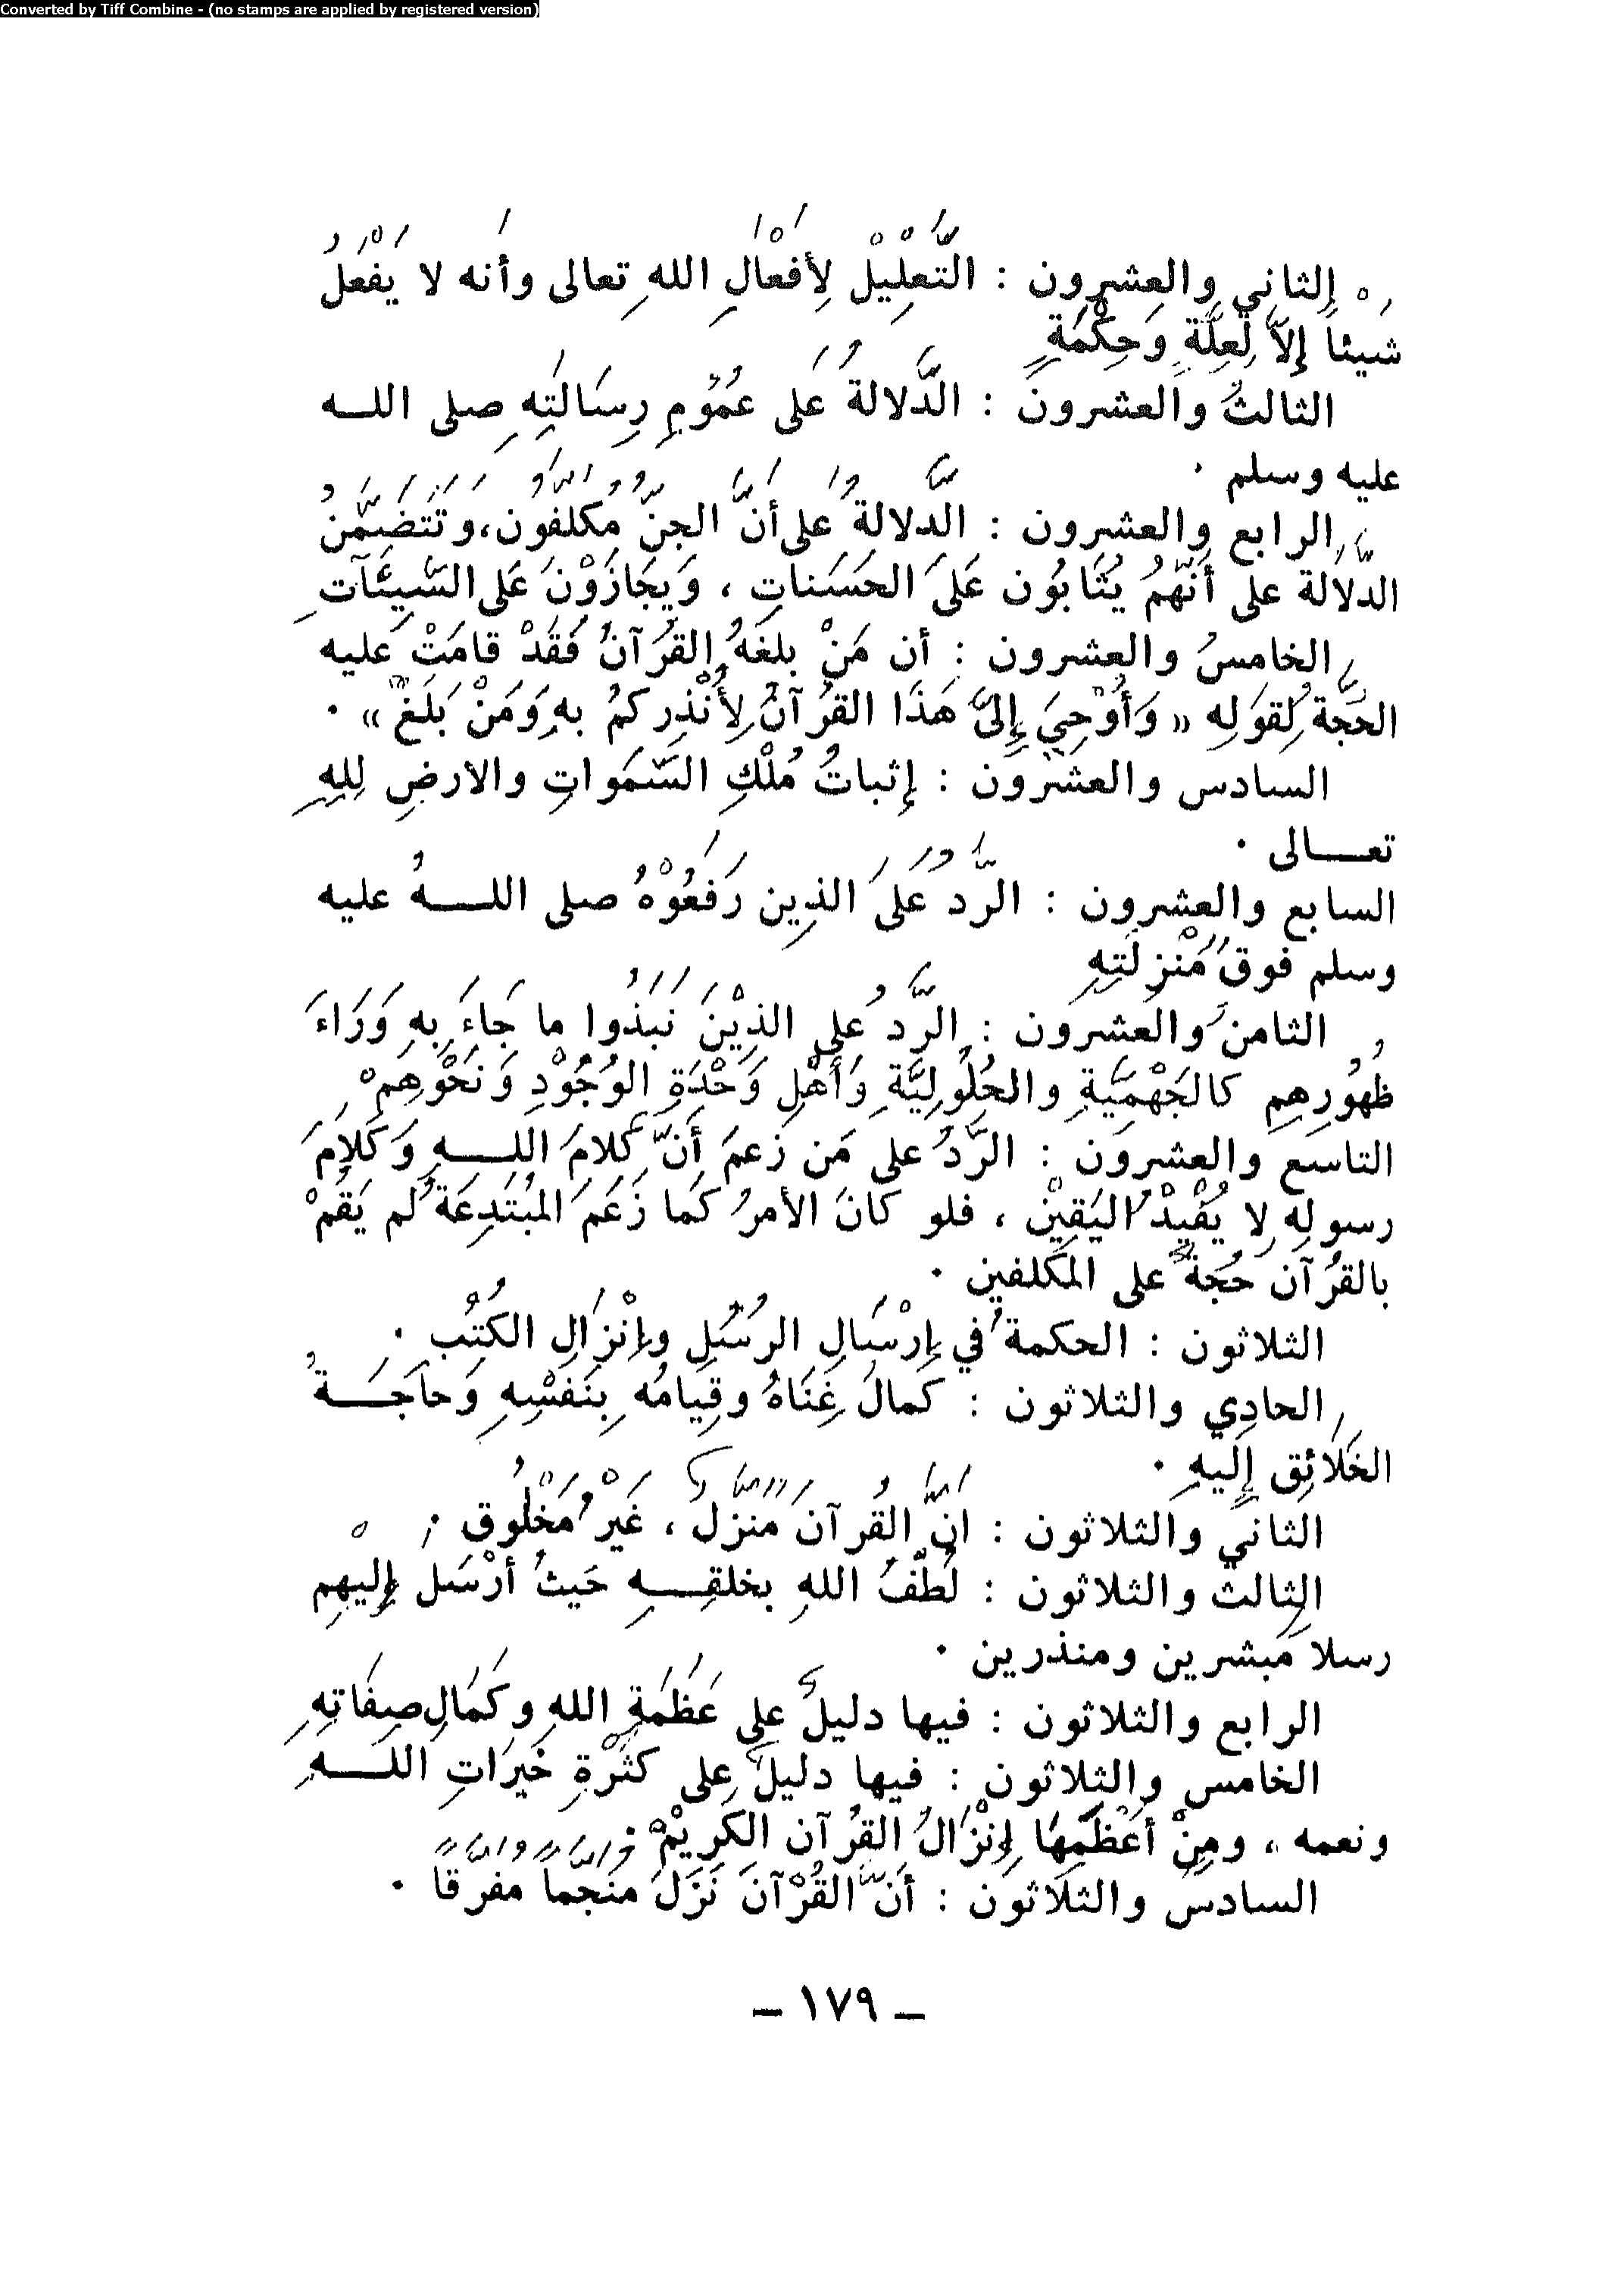 Converted by Tiff Combine - (no stamps are applied by registered version)
الثاني والعشرون : التَّعْلِيْلُ لِأَفْعَالِ اللهِ تعالى وأنه لا يَفْعَلُ
شَيْئاً إلاَّ لِعِلَّةٍ وَحِكْمَةٍ
الثالثُ والعشرون : الدَّلالةُ عَلى عُمُوْمِ رِسَالَتِهِ صلى اللـه
عليه وسلم .
الرابع والعشرون : الدَّلالةُ على أنَّ الجِنَّ مُكَلَّفُون، وَتَتَضَمَّنُ
الدَّلاَلَة على أَنَّهُمْ يُثَابُون عَلَى الحَسَناتِ ، وَيُجَازَوْنَ عَلى السَّيِّئَآتِ
الخامسُ والعشرون : أن مَنْ بلغَهُ القُرآنُ فَقَدْ قامَتْ عليه
الحُجَّةُ لِقَولِهِ « وَأُوْحِيَ إِلىَّ هَذَا القُرآنُ لِأُنْذِركمُ بهِ وَمَنْ بَلَغَ » .
السادس والعشرُون : إثباتُ مُلْكِ السَّمَواتِ والارضِ لِلهِ
تعـالى .
السابع والعشرون : الرَّدُ عَلَى الذِين رَفَعُوْهُ صلى اللـهُ عليه
وسلم فوقَ مَنْزِلَتِهِ
الثامنُ والعشرون : الرَّدُ على الذِيْنَ نَبَذُوا ما جَاءَ بِهِ وَرَاءَ
ظُهُورِهِم كالجَهْمِيَّةِ والحُلُوِليَّةِ وَأَهْلِ وَحْدَةِ الوُجُوْدِ وَنَحْوِهِمْ
التاسع والعشرون : الرَّدُ على مَن زَعمَ أَنَّ كَلامَ اللـهِ وَكَلامَ
رسولِهِ لا يُفْيِدُ اليَقِيْنَ ، فلو كانَ الأمرُ كَما زَعَمَ المُبْتَدِعَةُ لم يَقُمْ
بالقُرآن حُجَةٌ على المكلفين .
الثلاثون : الحكمةُ في إرْسَالِ الرسُلِ وإنْزَالِ الكُتُب .
الحادِي والثلاثون : كَمالُ غِنَاهُ وقِيامُه بِنَفْسِهِ وَحاجَـةُ
الخَلائِق إِليهِ .
الثاني والثلاثون : انَّ القُرآنَ مُنَزَّلٌ ، غَيْرُ مَخْلُوق .
الثالث والثلاثون : لُطْفُ اللهِ بخلقِـهِ حَيثُ أرْسَل إِليْهِم
رسلا مُبشرين ومنذرين .
الرابع والثلاثون : فيها دليلٌ على عَظَمَةِ اللهِ وكَمَالِ صِفَاتِهِ
الخامس والثلاثون : فيها دليلٌ على كَثْرَةِ خَيْرَاتِ اللـهِ
ونعمه ، ومِنْ أَعْظَمِهَا إنْزَالُ القُرآن الكَرِيْمْ .
السادسُ والثلاثون : أَنَّ القُرْآنَ نَزَلَ مُنَجَّماً مُفَرَّقاً .
– ١٧٩ –